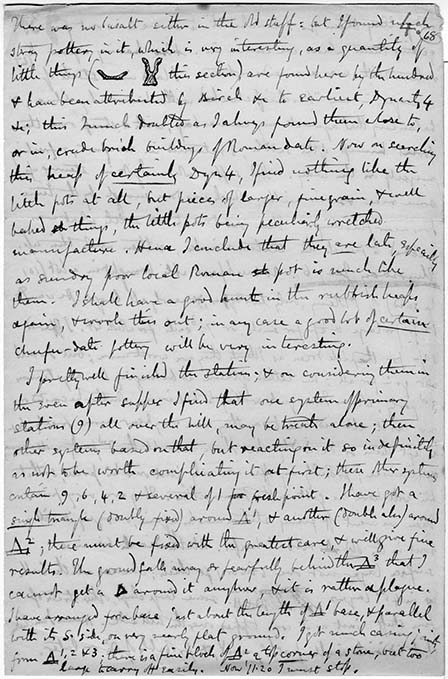 There was no basalt either in the old stuff: but I found much 68
stray pottery in it, which is very interesting, as a quantity of
little things ( this section) are found here by the hundred
& have been attributed by Birch &c to earliest, Dynasty 4
&c; this I much doubted as I always found them close to,
or in, crude brick buildings of Roman date. Now on searching
this heap of certainly Dyn 4, I find nothing like the
little pots at all, but pieces of larger, fine grain, & well
baked things, the little pots being peculiarly wretched
manufacture. Hence I conclude that they are late, especially
as sundry poor local Roman pot is much like
them. I shall have a good hunt in the rubbish heaps
again, & work this out; in any case a good lot of certain
chufu-date pottery will be very interesting.
I pretty well finished the stations; & on considering them in
the even after supper I find that one system of primary
stations (9) all over the hill, may be treated alone; then
other systems based on that, but reacting on it so indefinitely
as not to be worth complicating it at first; these other systems
contain 9, 6, 4, 2 & several of 1 fresh point. I have got a
single triangle (doubly fixed) around Δ1, & another (double also) around
Δ2; these must be fixed with the greatest care, & will give fine
results. The ground falls away so fearfully behind the Δ3 that I
cannot get a Δ around it anyhow, & it is rather a plague.
I have arranged for a base just about the length of Δ1 base, & parallel
with its S. side, on very nearly flat ground. I got much casing,
from Δ1, 2 & 3. there is a fine block of Δ2 a top corner of a stone, but too
large to carry off easily. Now 11.20 I must stop.